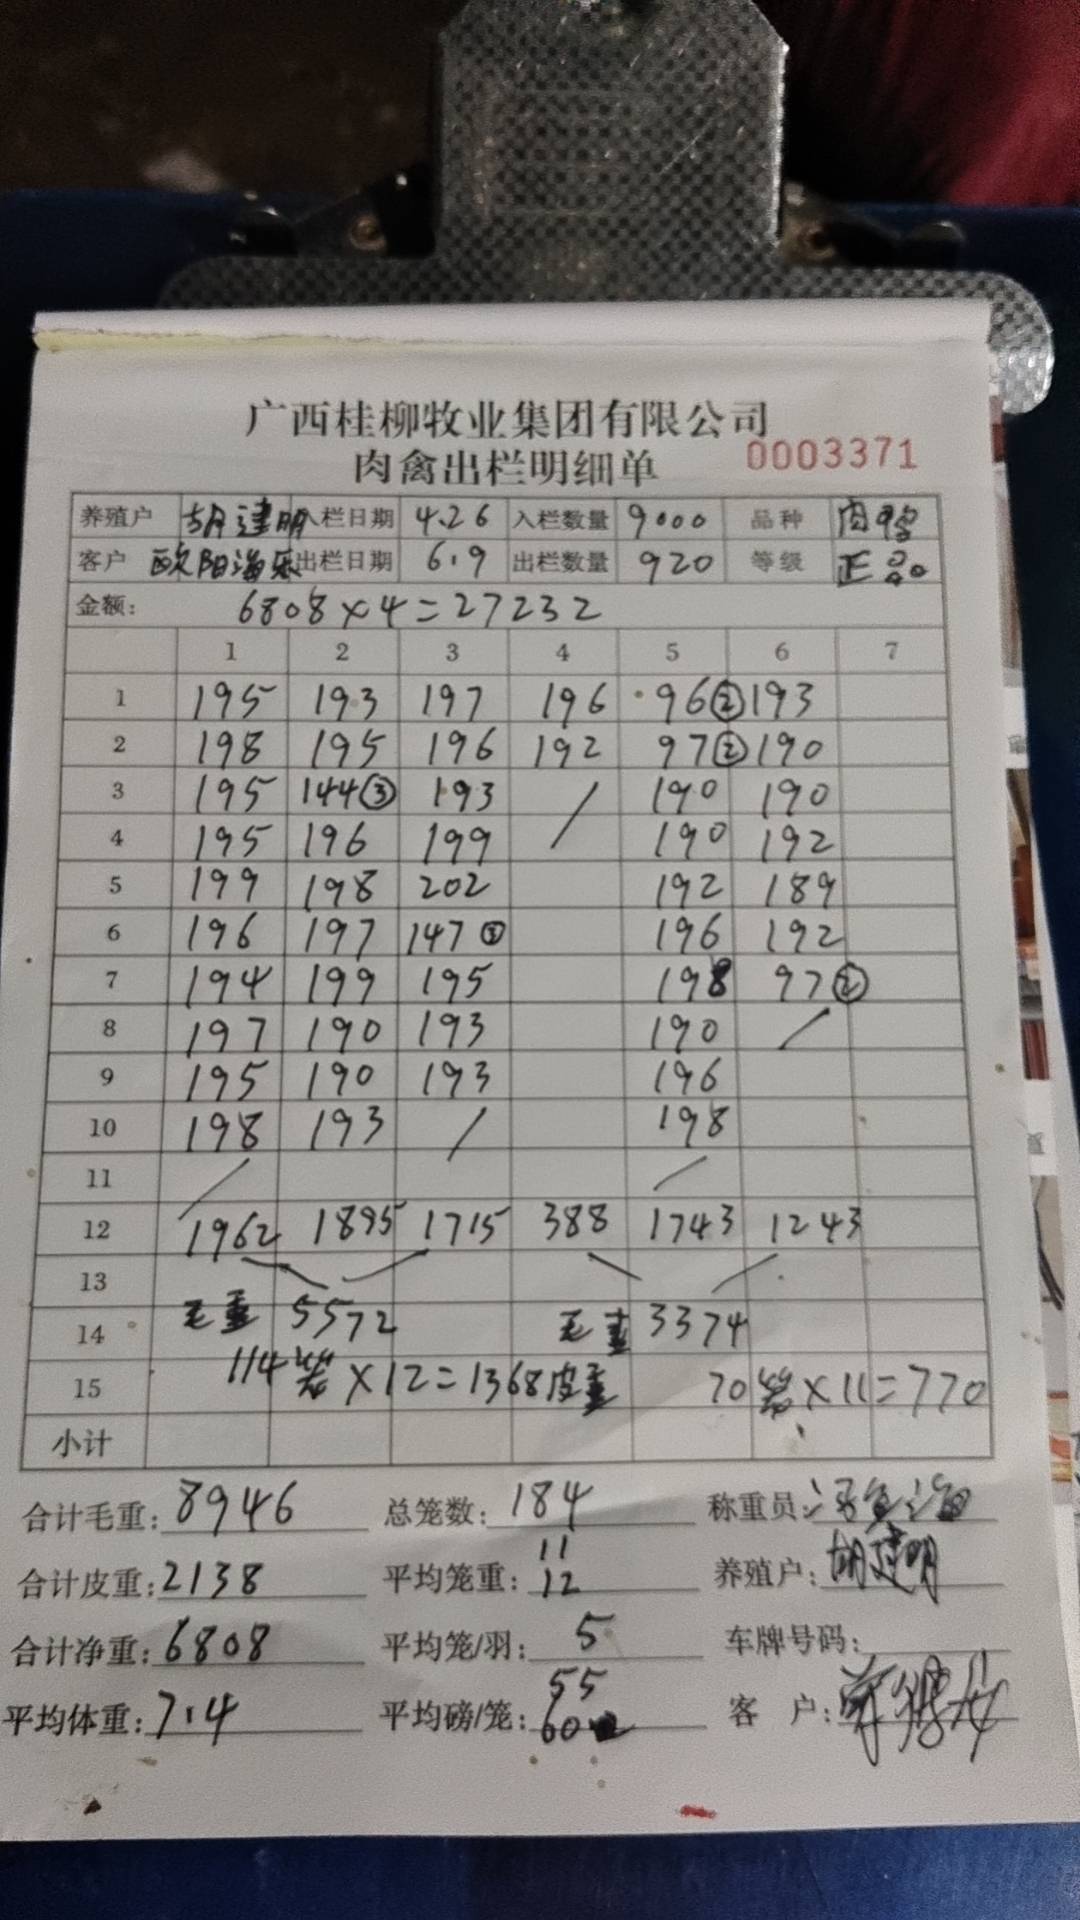 广西桂柳牧业集团有限公司
肉禽出栏明细单 0003371
养殖户 胡建明 入栏日期 4.26 入栏数量 9000 品种 肉鸭
客户 欧阳海乐 出栏日期 6.9 出栏数量 920 等级 正品
金额: 6808×4=27232
1 2 3 4 5 6 7
1 195 193 197 196 96② 193
2 198 195 196 192 97② 190
3 195 144③ 193 / 190 190
4 195 196 199 190 192
5 199 198 202 192 189
6 196 197 147③ 196 192
7 194 199 195 198 97②
8 197 190 193 190 /
9 195 190 193 196
10 198 193 / 198
11 / /
12 1962 1895 1715 388 1743 1243
13
14 毛重 5572 毛重 3374
15 114笼×12=1368皮重 70笼×11=770
小计
合计毛重: 8946 总笼数: 184 称重员:
合计皮重: 2138 平均笼重: 11 12 养殖户: 胡建明
合计净重: 6808 平均笼/羽: 5 车牌号码:
平均体重: 7.4 平均磅/笼: 55 60 客 户: